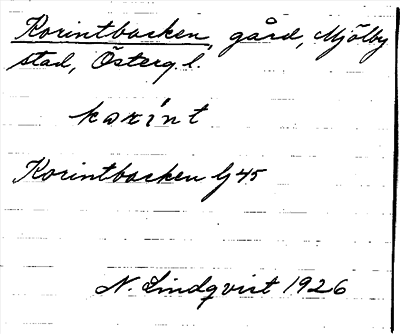 Korintbacken, gård, Mjölby
stad, Österg.l.
kərínt
Korintbacken Gj 45
N. Lindqvist 1926